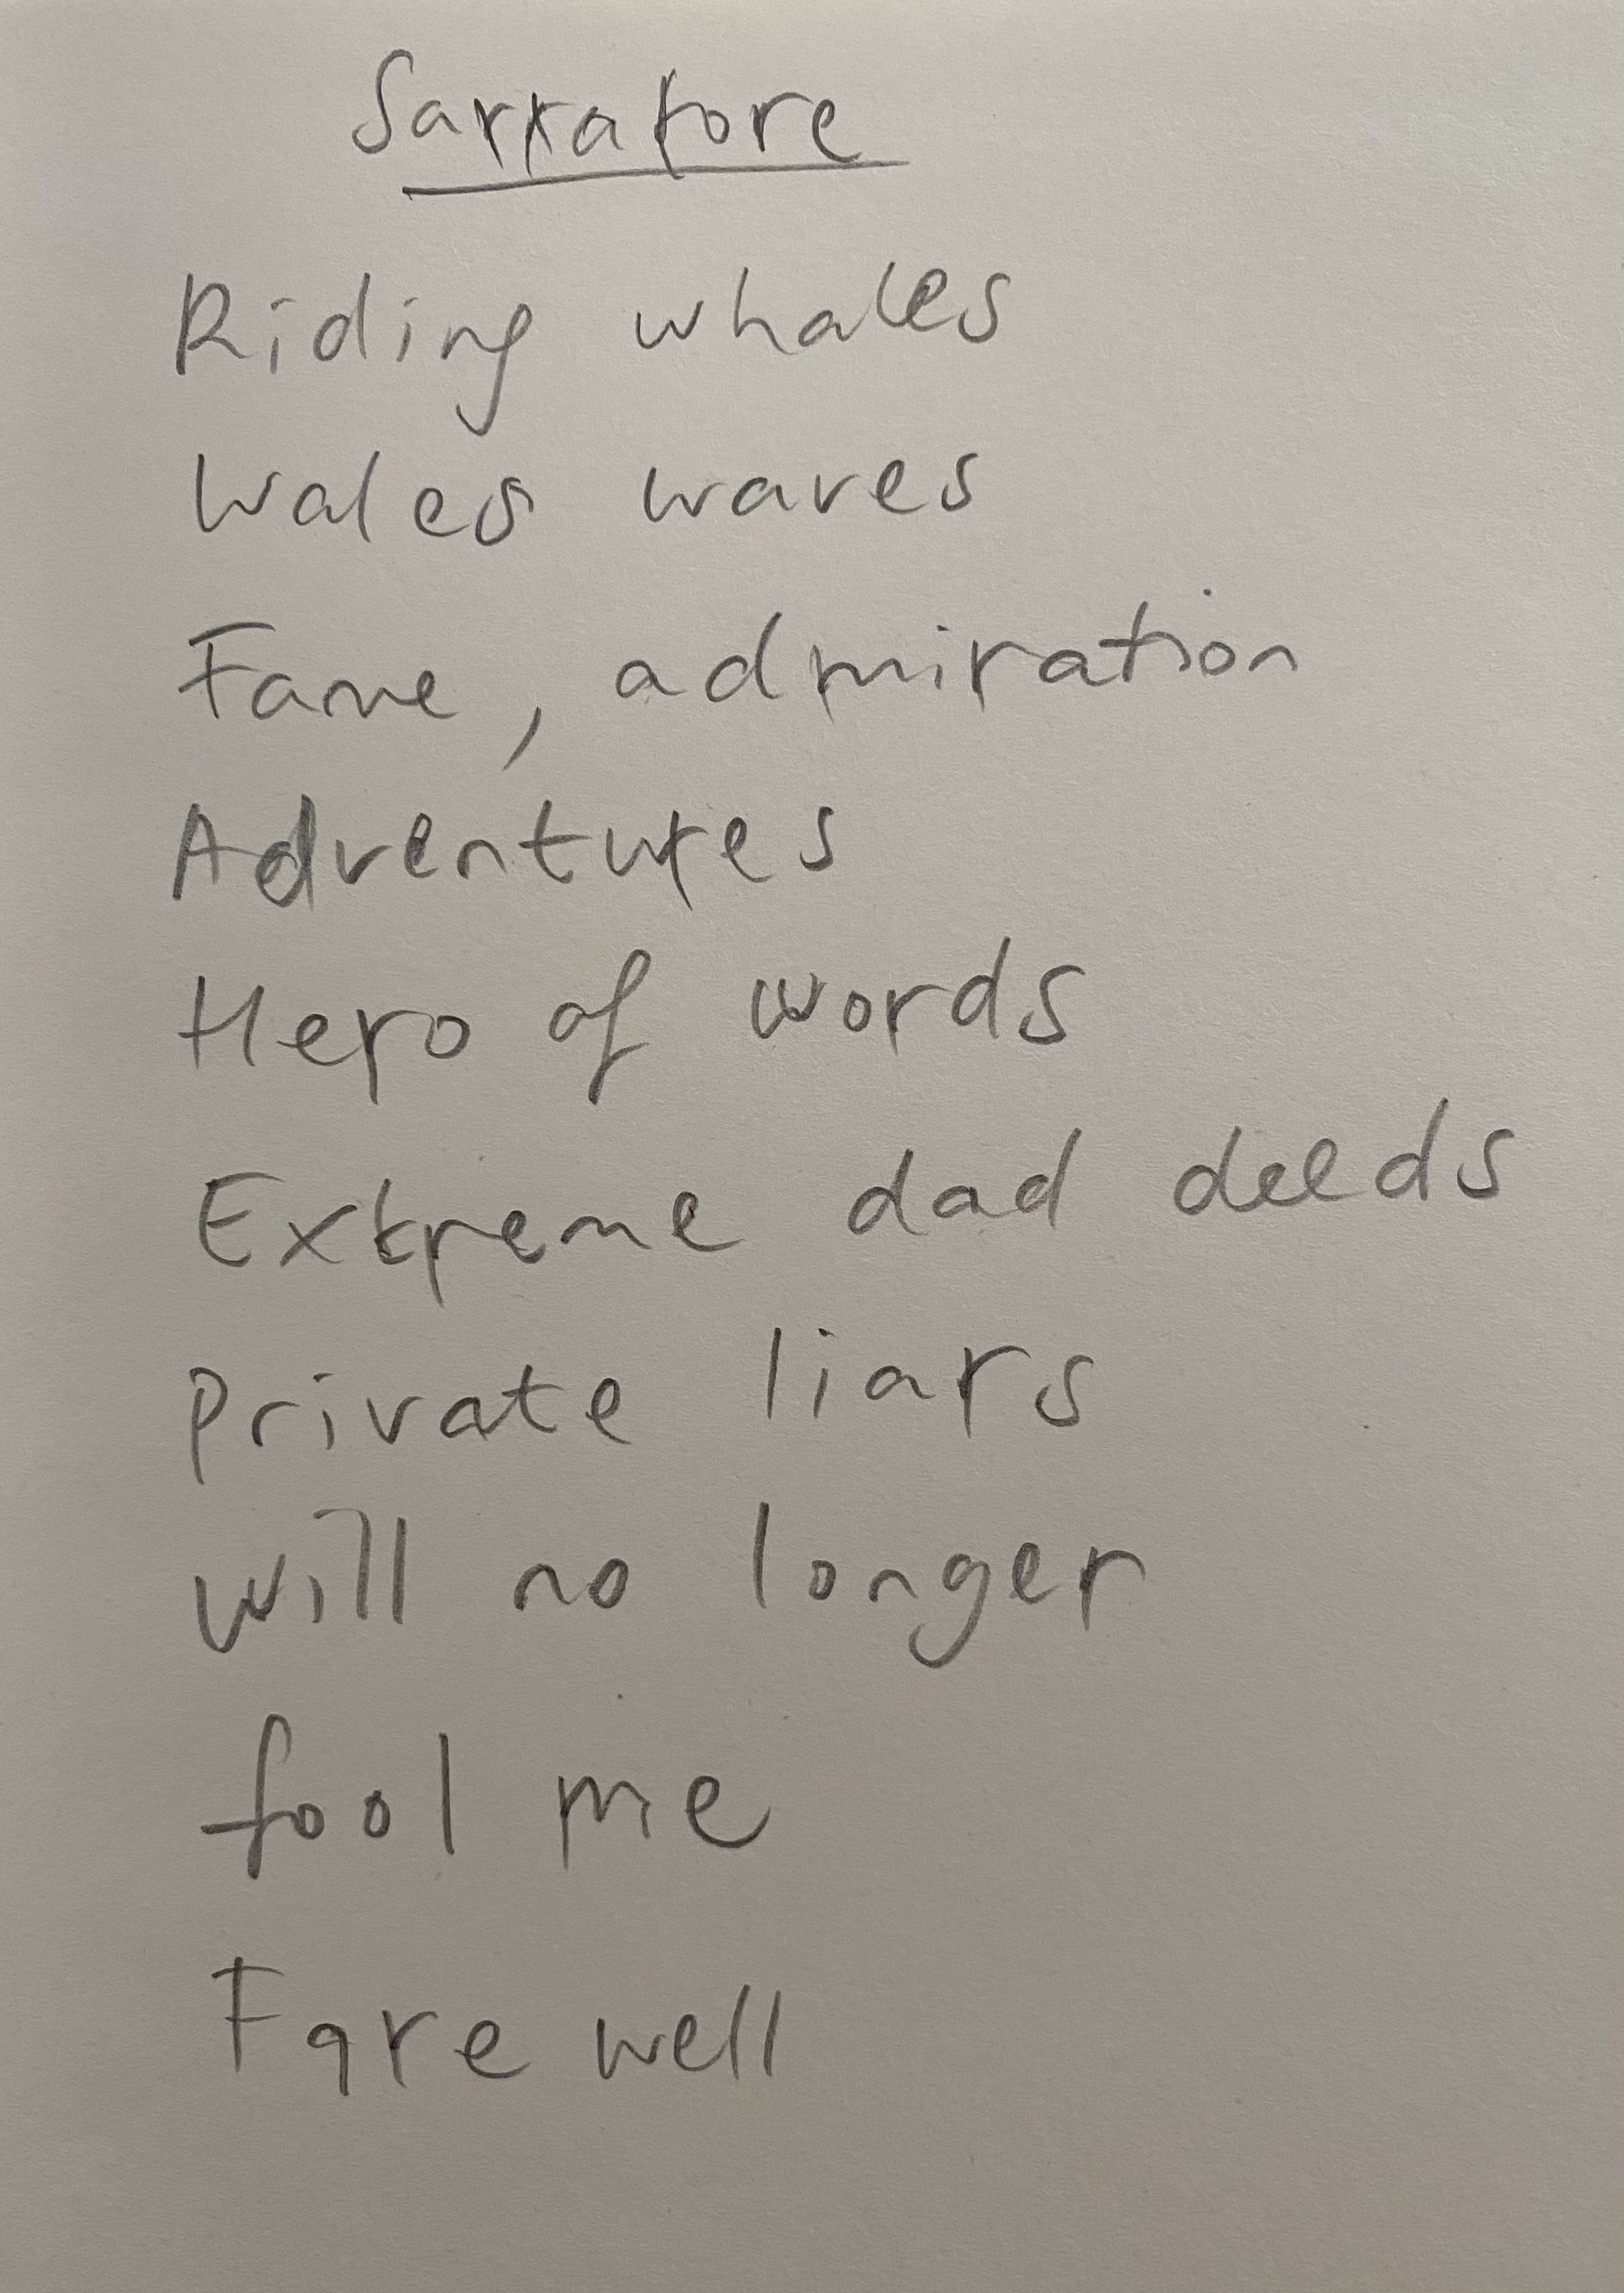 Sarratore
Riding whales
Wales waves
Fame, admiration
Adventures
Hero of words
Extreme dad deeds
Private liars
will no longer
fool me
Farewell